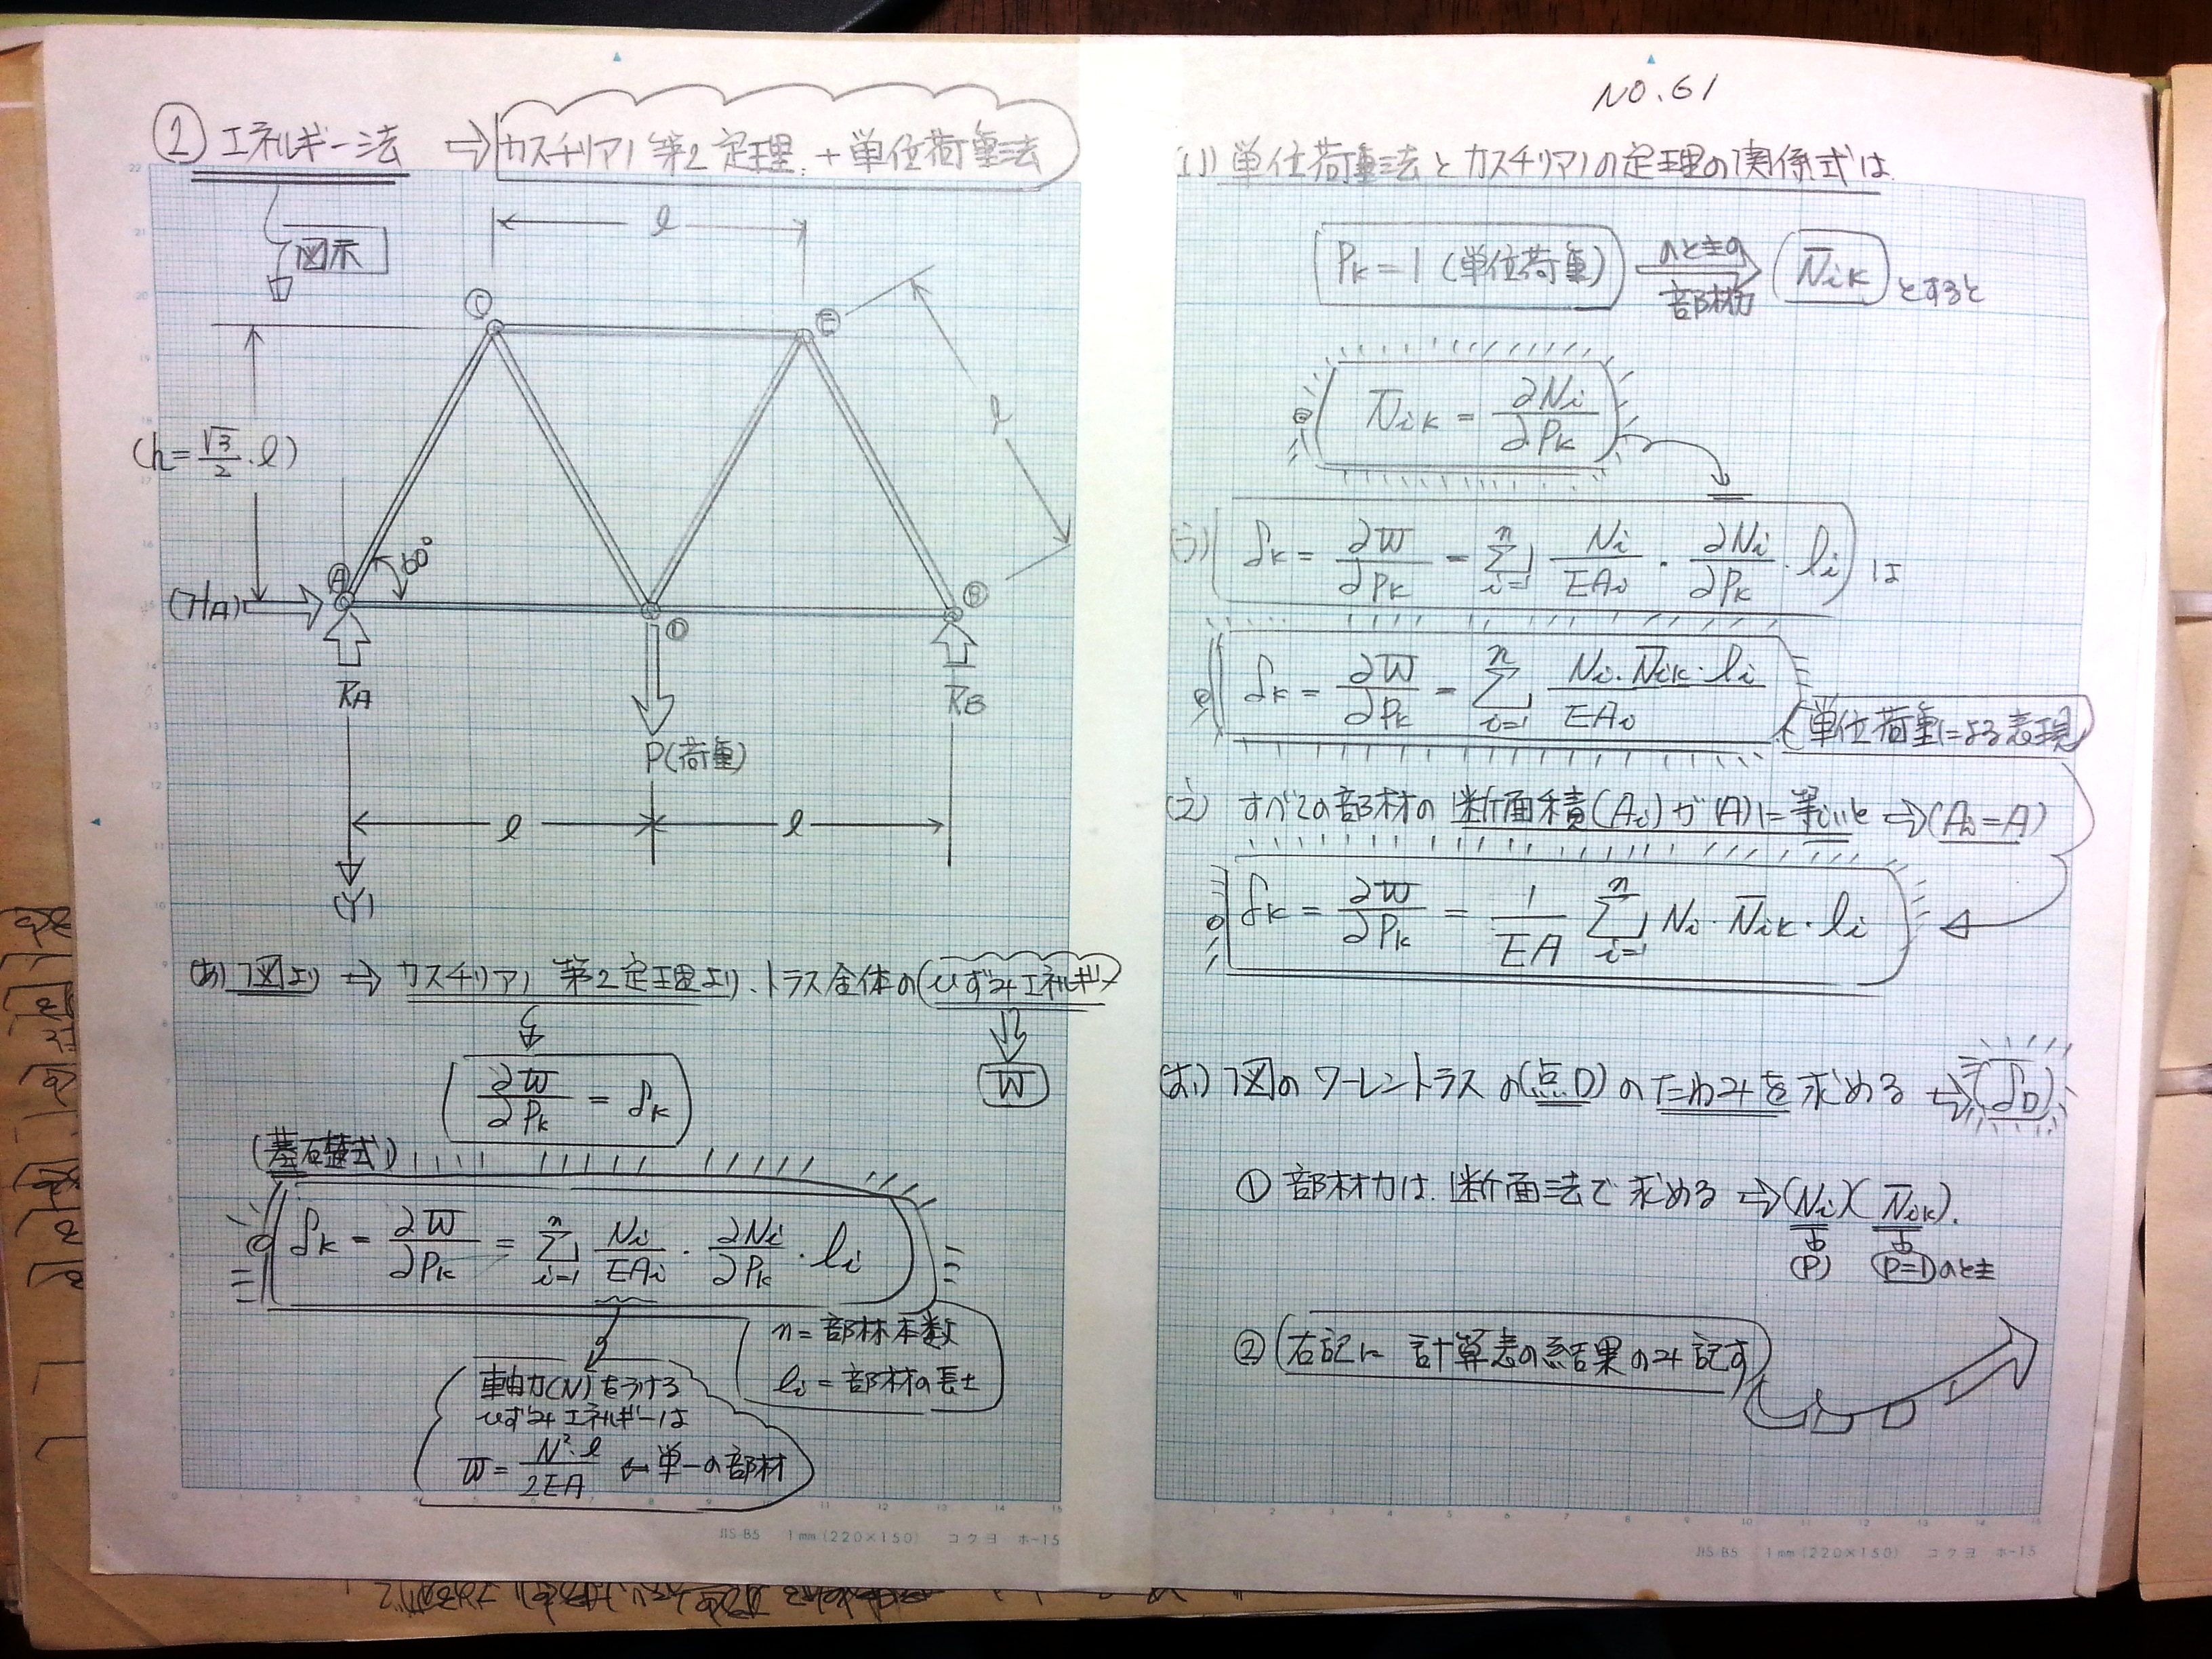 ① エネルギー法 ⇨ カスチリアノ第2定理 + 単位荷重法
図示
l
C
E
l
(h=√3/2・l)
60°
A
B
(HA)
D
RA
RB
P(荷重)
l
l
(Y)
(あ) 7図より ⇨ カスチリアノ 第2定理より、トラス全体の(ひずみエネルギー)
W
∂W/∂Pk = δk
(基礎式)
δk = ∂W/∂Pk = Σ[i=1→n] Ni/EAi・∂Ni/∂Pk・li
n=部材本数
li=部材の長さ
軸力(N)をうける
ひずみエネルギーは
W=N²・l/2EA ← 単一の部材
JIS-B5 1mm(220×150) コクヨ ホ-15
NO.61
(い) 単位荷重法とカスチリアノの定理の関係式は
Pk=1 (単位荷重) のときの 部材力 N̄ik とすると
N̄ik = ∂Ni/∂Pk
(う) δk = ∂W/∂Pk = Σ[i=1→n] Ni/EAi・∂Ni/∂Pk・li は
δk = ∂W/∂Pk = Σ[i=1→n] Ni・N̄ik・li/EAi
(単位荷重による表現)
(え) すべての部材の断面積(Ai)が(A)に等しいと ⇨ (Ai=A)
δk = ∂W/∂Pk = 1/EA Σ[i=1→n] Ni・N̄ik・li
(お) 7図のワーレントラスの(点D)のたわみを求める ⇨ (δD)
① 部材力は、断面法で求める ⇨ (Ni)(N̄ik).
(P) (P=1)のとき
② 右記に計算表の結果のみ記す
JIS-B5 1mm(220×150) コクヨ ホ-15